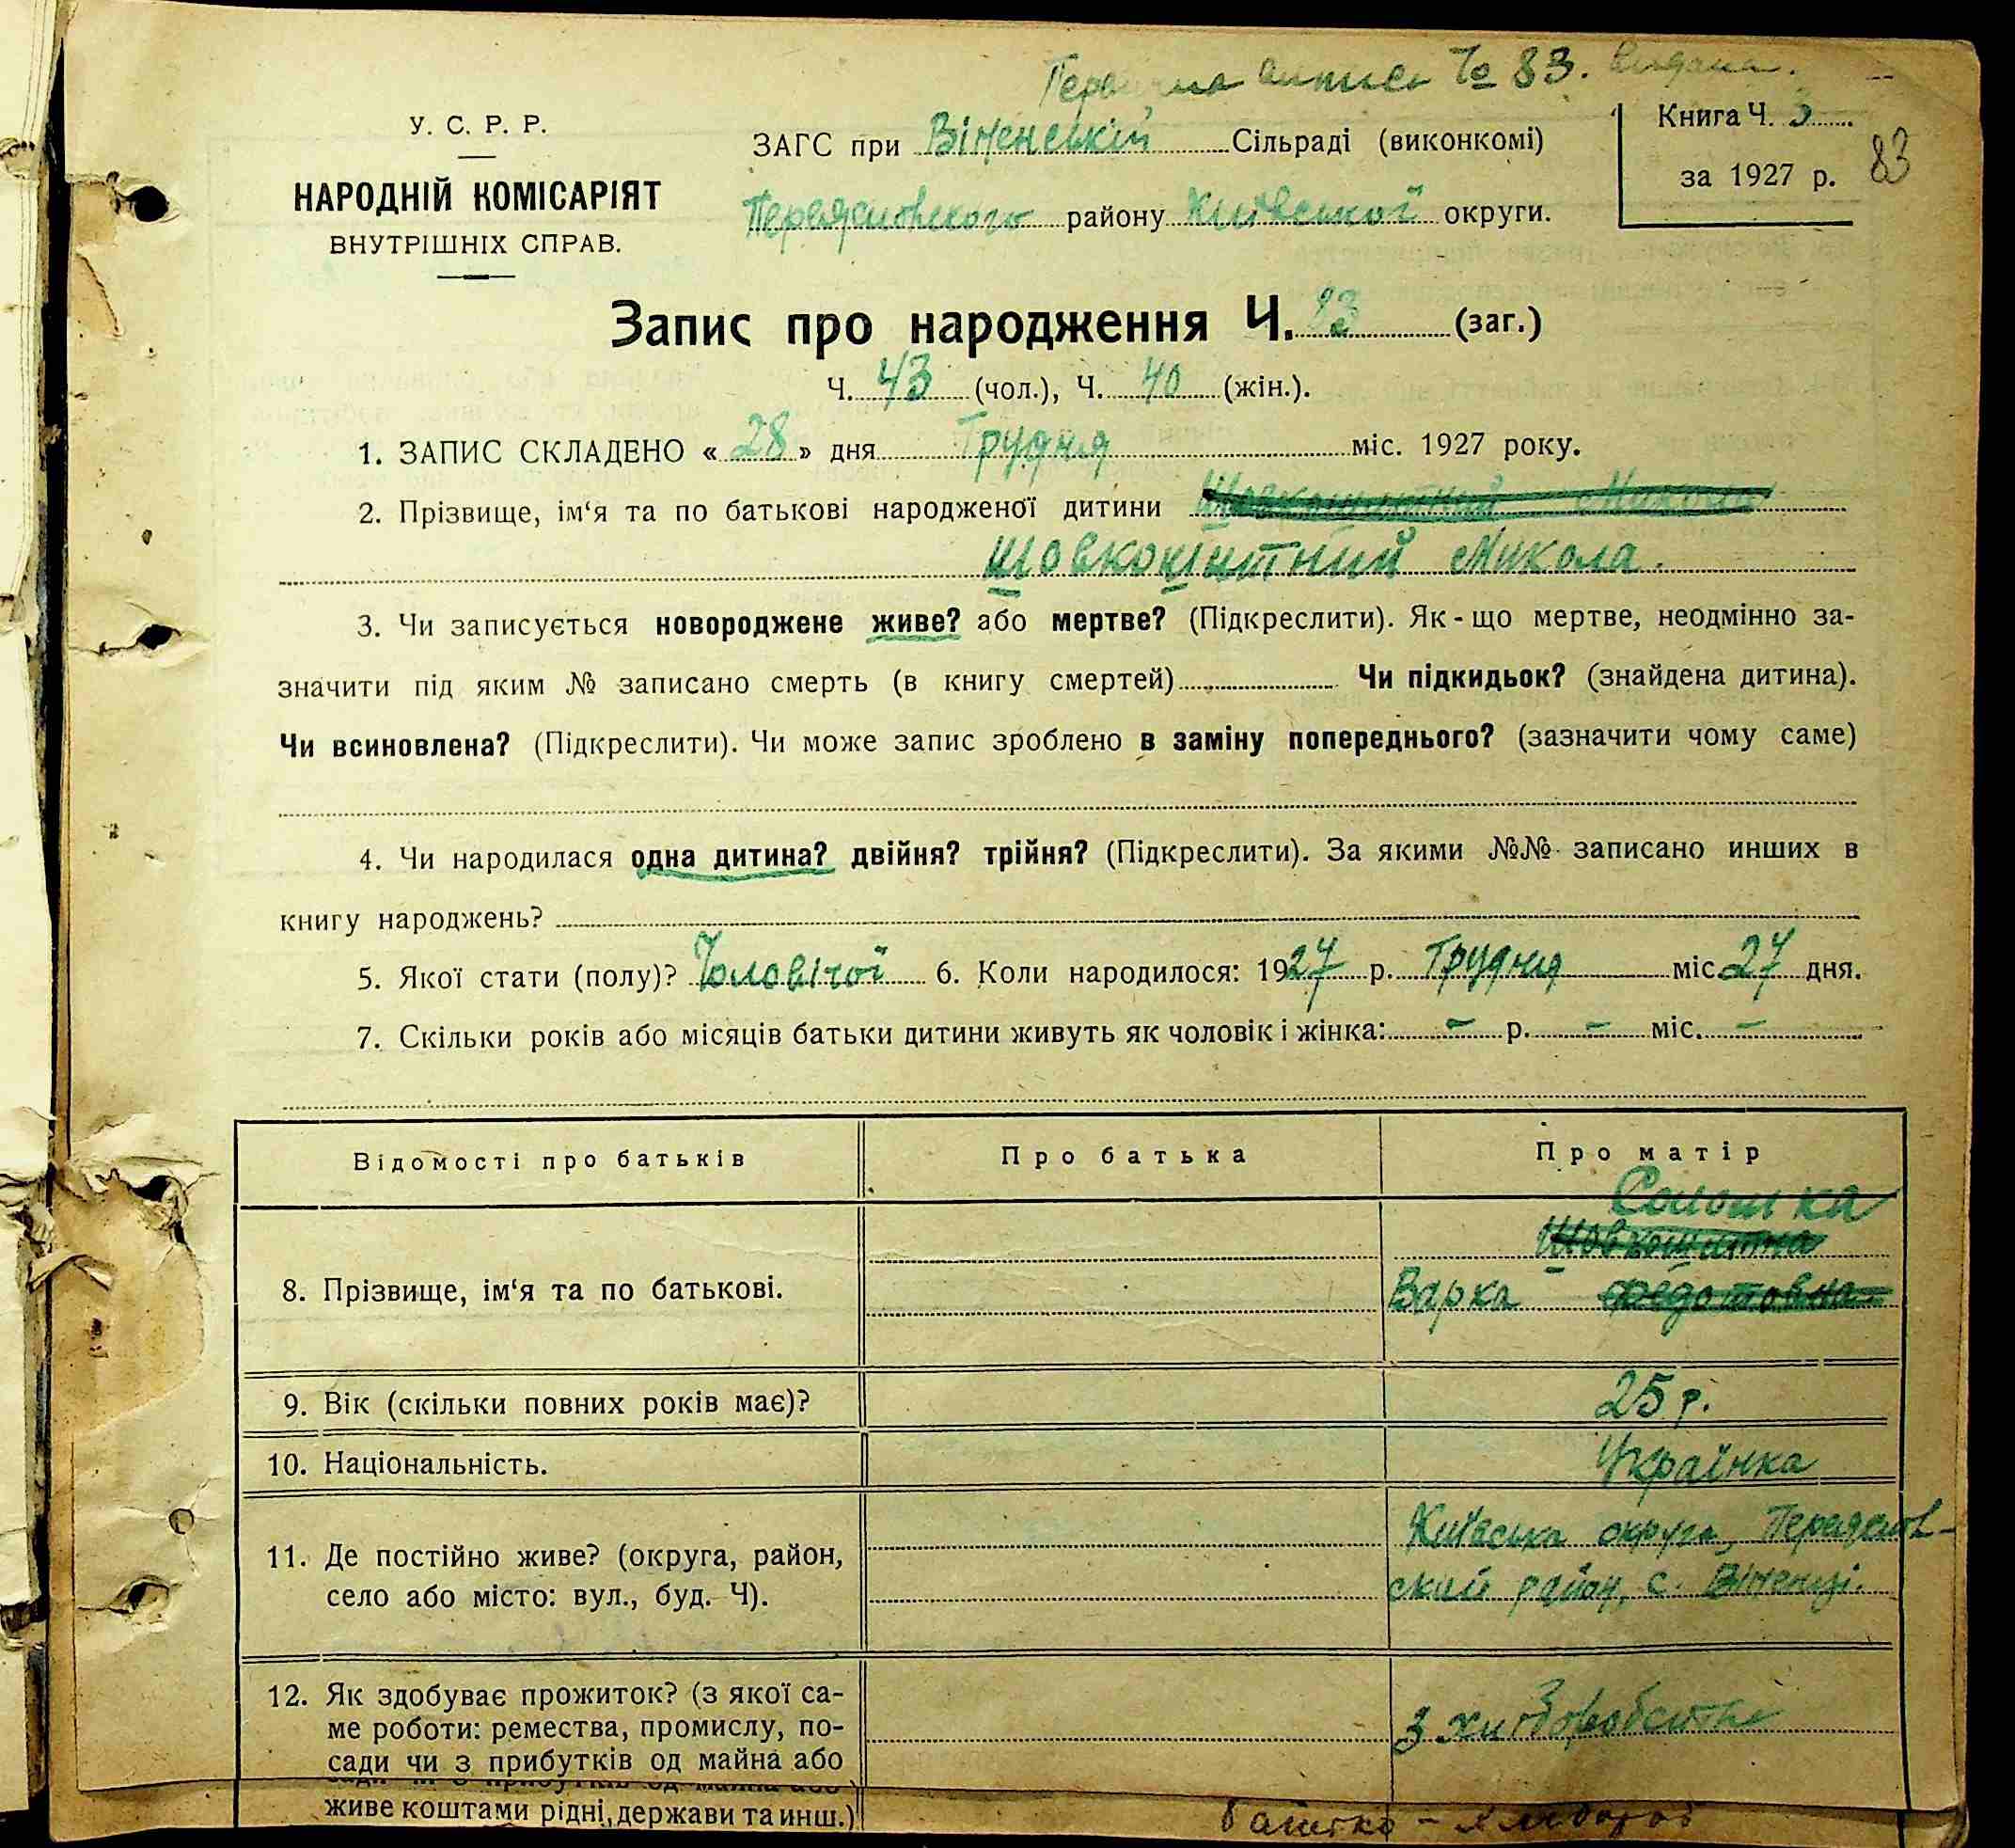 Первична випись № 83. видана.
У. С. Р. Р.
НАРОДНІЙ КОМІСАРІЯТ
ВНУТРІШНІХ СПРАВ.
ЗАГС при Віненській Сільраді (виконкомі)
Переяславського району Київської округи.
Книга Ч. 3
за 1927 р.
83
Запис про народження Ч. 83 (заг.)
Ч. 43 (чол.), Ч. 40 (жін.).
1. ЗАПИС СКЛАДЕНО « 28 » дня Грудня міс. 1927 року.
2. Прізвище, ім‘я та по батькові народженої дитини Шовкошитний Микола
Шовкошитний Микола.
3. Чи записується новороджене живе? або мертве? (Підкреслити). Як-що мертве, неодмінно за-
значити під яким № записано смерть (в книгу смертей) Чи підкидьок? (знайдена дитина).
Чи всиновлена? (Підкреслити). Чи може запис зроблено в заміну попереднього? (зазначити чому саме)
4. Чи народилася одна дитина? двійня? трійня? (Підкреслити). За якими №№ записано инших в
книгу народжень?
5. Якої стати (полу)? Чоловічої 6. Коли народилося: 1927 р. Грудня міс. 27 дня.
7. Скільки років або місяців батьки дитини живуть як чоловік і жінка: – р. – міс. –
Відомості про батьків Про батька Про матір
Солошка
Шовкошитна
8. Прізвище, ім‘я та по батькові. Варка Федотовна
9. Вік (скільки повних років має)? 25 р.
10. Національність. Українка
Київська округа, Переяслов-
11. Де постійно живе? (округа, район,
село або місто: вул., буд. Ч). ский район, с. Віненці.
12. Як здобуває прожиток? (з якої са-
ме роботи: ремества, промислу, по- З хліборобства
сади чи з прибутків од майна або
живе коштами рідні, держави та инш.)